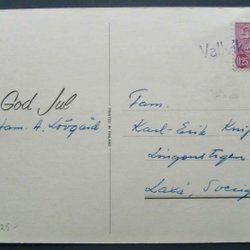 God Jul
Fam. A. Lövgård
PRINTED IN FINLAND
Fam.
Karl-Erik
Lingonstigen
Laxå, Sverige